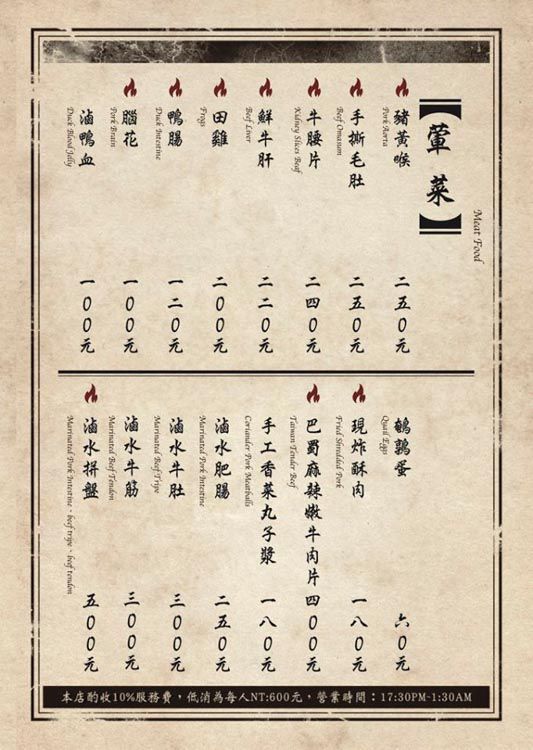 【葷菜】
Meat Food
豬黃喉 二五0元
Pork Aorta
手撕毛肚 二五0元
Beef Omasum
牛腰片 二四0元
Kidney Slices Beaf
鮮牛肝 二二0元
Beef Liver
田雞 二00元
Frogs
鴨腸 一二0元
Duck Intestine
腦花 一00元
Pork Brain
滷鴨血 一00元
Duck Blood Jelly
鵪鶉蛋 六0元
Quail Eggs
現炸酥肉 一八0元
Fried Shredded Pork
巴蜀麻辣嫩牛肉片 四00元
Taiwan Tender Beef
手工香菜丸子漿 一八0元
Coriander Pork Meatballs
滷水肥腸 二五0元
Marinated Pork Intestine
滷水牛肚 三00元
Marinated Beef Tripe
滷水牛筋 三00元
Marinated Beef Tendon
滷水拼盤 五00元
Marinated Pork Intestine、beef tripe、beef tendon
本店酌收10%服務費，低消為每人NT:600元，營業時間：17:30PM~1:30AM